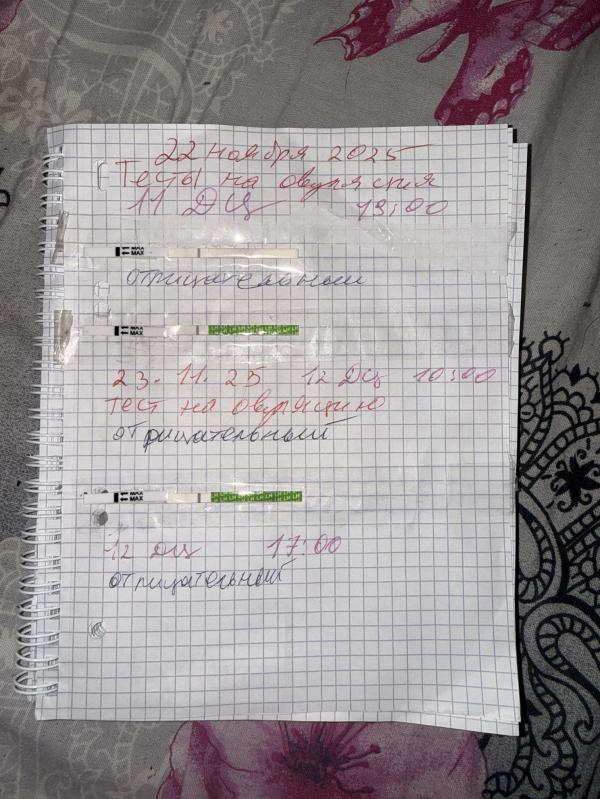 22 ноября 2025
Тесты на овуляция
11 ДЦ 19:00
MAX
отрицательный
MAX
23.11.25 12 ДЦ 10:00
тест на овуляцию
отрицательный
MAX
12 ДЦ 17:00
отрицательный